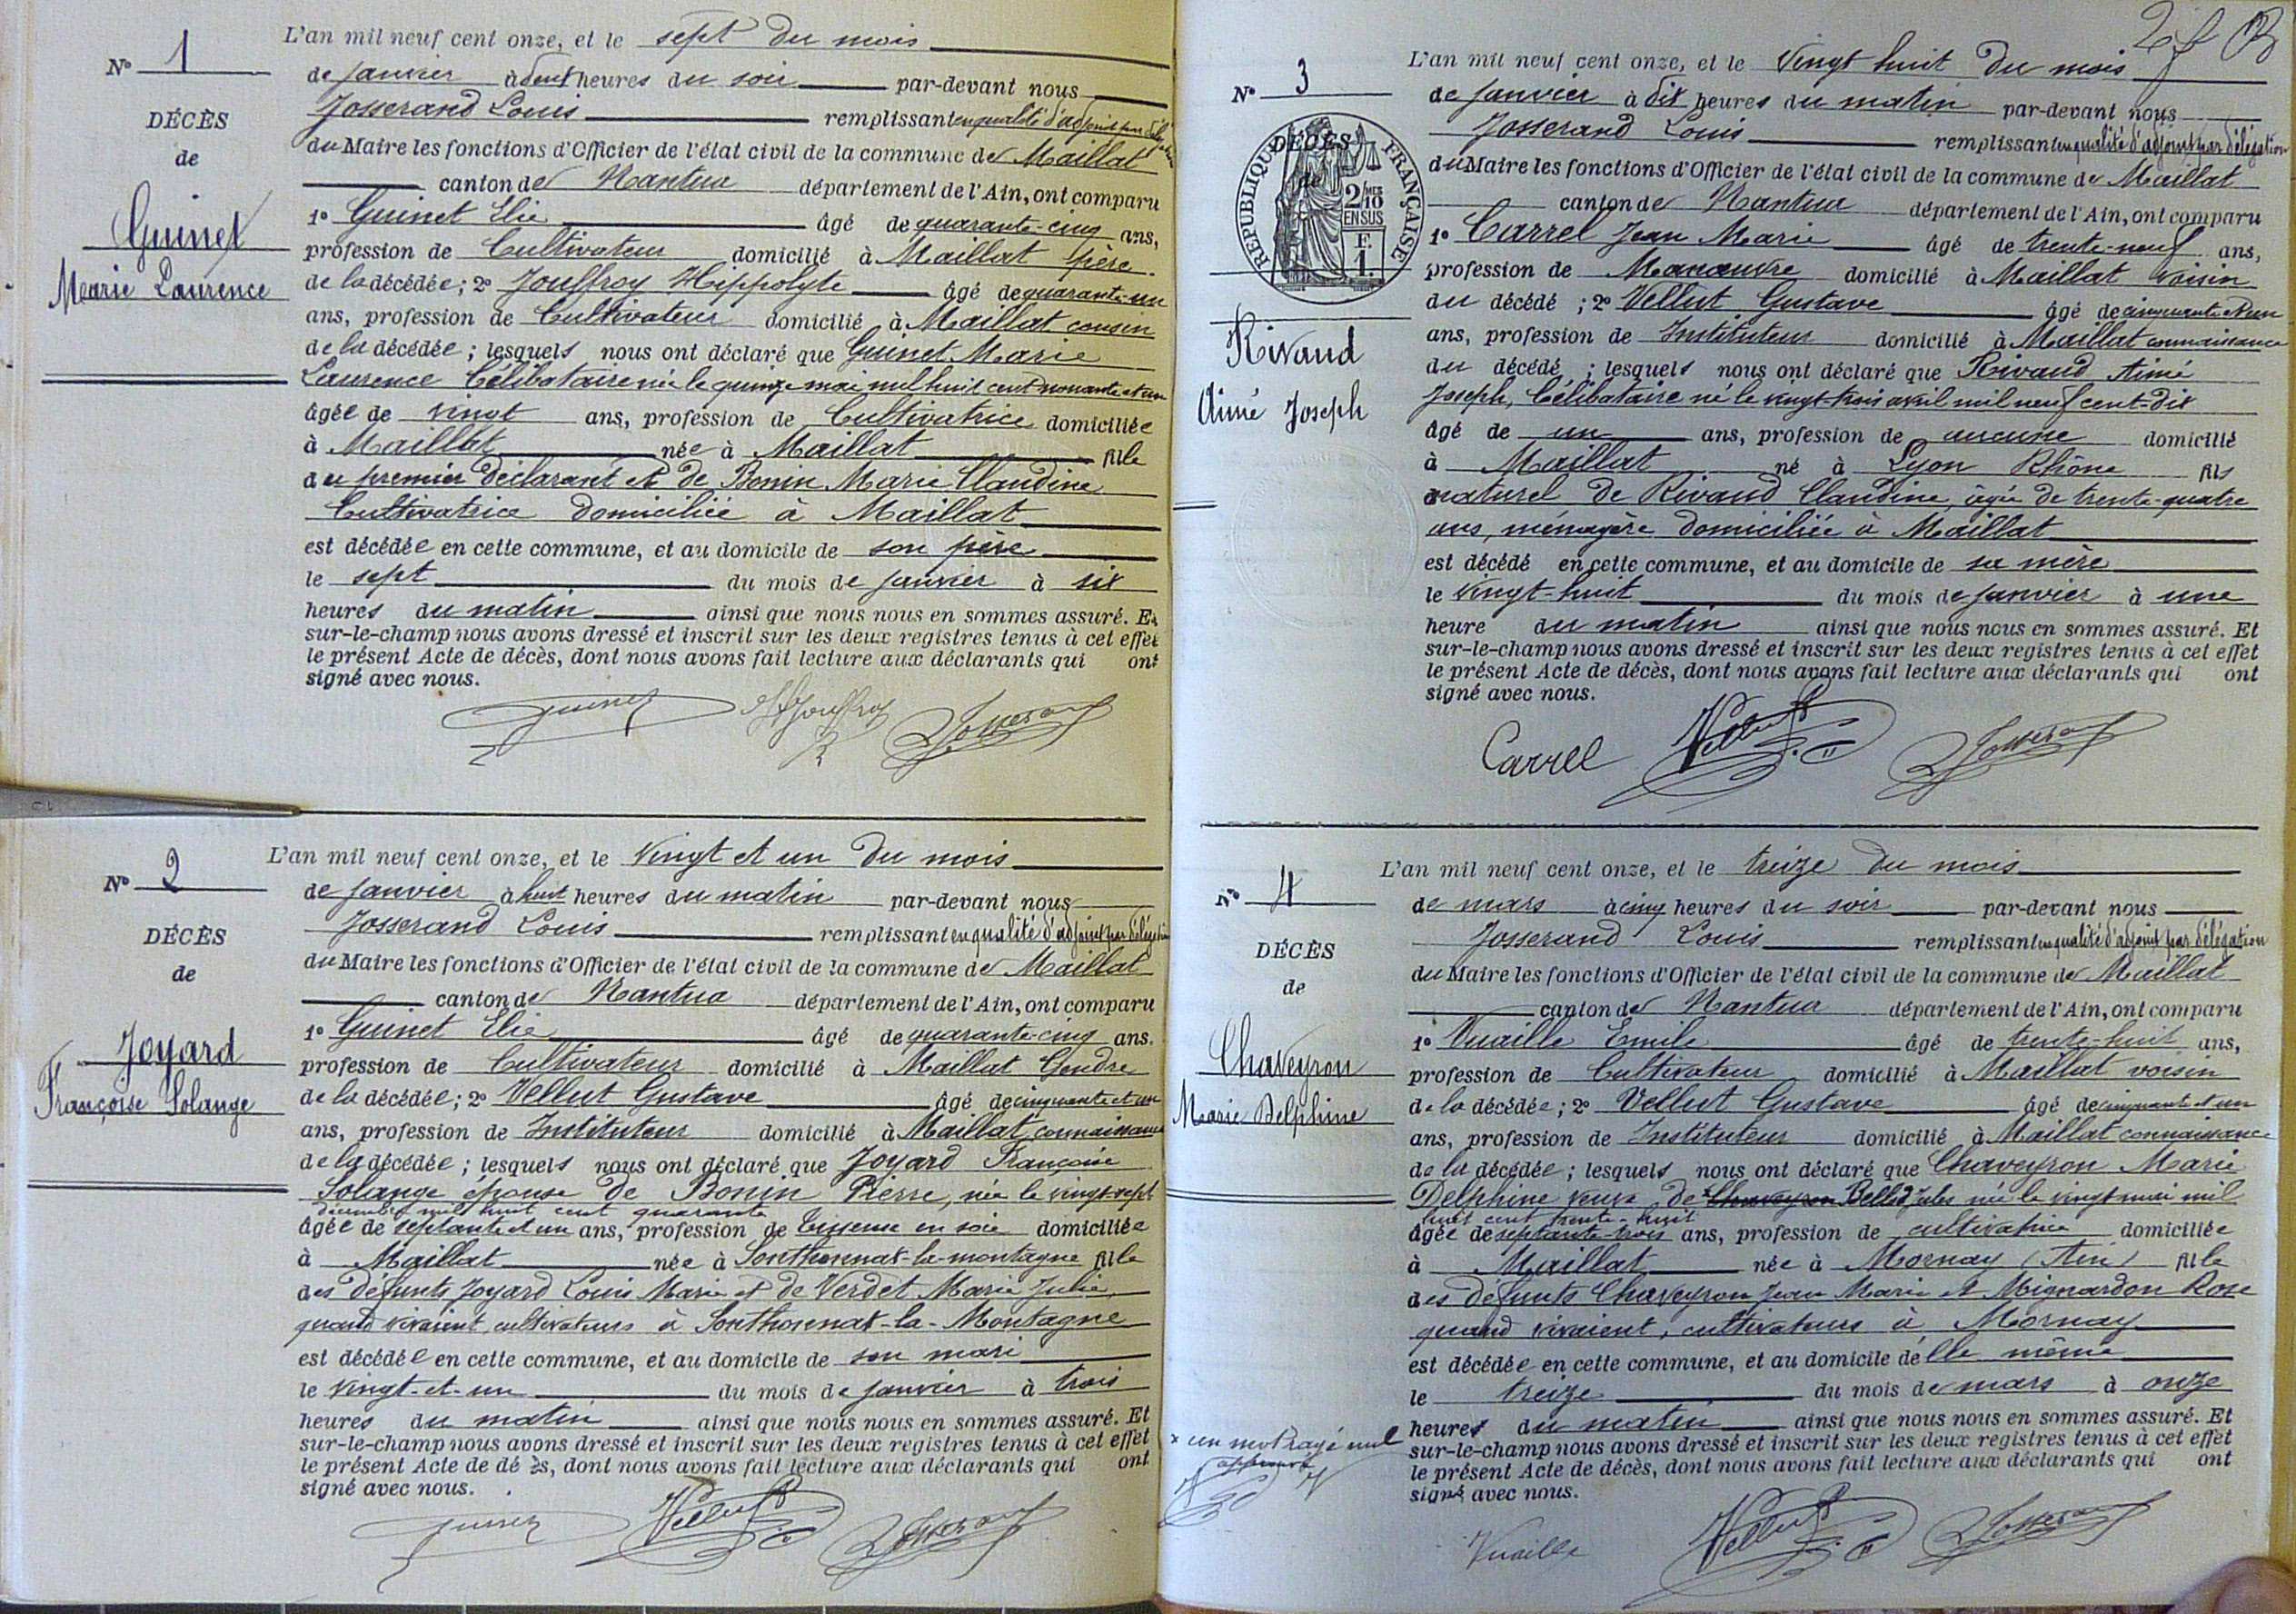 N° 1
DÉCÈS
de
Guinet
Marie Laurence
L'an mil neuf cent onze, et le sept du mois
de janvier à deux heures du soir par-devant nous
Josserand Louis remplissant en qualité d'adjoint par délégation
du Maire les fonctions d'Officier de l'état civil de la commune de Maillat
canton de Nantua département de l'Ain, ont comparu
1° Guinet Elie âgé de quarante-cinq ans,
profession de Cultivateur domicilié à Maillat père
de la décédée ; 2° Jouffroy Hippolyte âgé de quarante-un
ans, profession de Cultivateur domicilié à Maillat cousin
de la décédée ; lesquels nous ont déclaré que Guinet Marie
Laurence Célibataire née le quinze mai mil huit cent nonante et un
âgée de vingt ans, profession de Cultivatrice domiciliée
à Maillat née à Maillat fille
du premier déclarant et de Bonin Marie Claudine
Cultivatrice domiciliée à Maillat
est décédée en cette commune, et au domicile de son père
le sept du mois de janvier à six
heures du matin ainsi que nous nous en sommes assuré. Et
sur-le-champ nous avons dressé et inscrit sur les deux registres tenus à cet effet
le présent Acte de décès, dont nous avons fait lecture aux déclarants qui ont
signé avec nous.
Guinet HJouffroy Josserand
N° 2
DÉCÈS
de
Joyard
Françoise Solange
L'an mil neuf cent onze, et le vingt et un du mois
de janvier à huit heures du matin par-devant nous
Josserand Louis remplissant en qualité d'adjoint par délégation
du Maire les fonctions d'Officier de l'état civil de la commune de Maillat
canton de Nantua département de l'Ain, ont comparu
1° Guinet Elie âgé de quarante-cinq ans.
profession de Cultivateur domicilié à Maillat Gendre
de la décédée ; 2° Vellut Gustave âgé de cinquante et un
ans, profession de Instituteur domicilié à Maillat connaissance
de la décédée ; lesquels nous ont déclaré que Joyard Françoise
Solange épouse de Bonin Pierre, née le vingt-sept
décembre mil huit cent quarante
âgée de septante et un ans, profession de tisseuse en soie domiciliée
à Maillat née à Sonthonnax-la-montagne fille
des défunts Joyard Louis Marie et de Verdet Marie Julie,
quand vivaient, cultivateurs à Sonthonnax-la-Montagne
est décédée en cette commune, et au domicile de son mari
le vingt-et-un du mois de janvier à trois
heures du matin ainsi que nous nous en sommes assuré. Et
sur-le-champ nous avons dressé et inscrit sur les deux registres tenus à cet effet
le présent Acte de dé ès, dont nous avons fait lecture aux déclarants qui ont
signé avec nous.
Guinet Vellut Josserand
N° 3
DÉCÈS
de
RÉPUBLIQUE FRANÇAISE
2/10 MES
EN SUS
F.
1.
Rivaud
Aimé Joseph
L'an mil neuf cent onze, et le vingt huit du mois
de janvier à dix heures du matin par-devant nous
Josserand Louis remplissant en qualité d'adjoint par délégation
du Maire les fonctions d'Officier de l'état civil de la commune de Maillat
canton de Nantua département de l'Ain, ont comparu
1° Carrel Jean Marie âgé de trente-neuf ans,
profession de Manœuvre domicilié à Maillat voisin
du décédé ; 2° Vellut Gustave âgé de cinquante et un
ans, profession de Instituteur domicilié à Maillat connaissance
du décédé ; lesquels nous ont déclaré que Rivaud Aimé
Joseph, Célibataire né le vingt trois avril mil neuf cent-dix
âgé de un ans, profession de aucune domicilié
à Maillat né à Lyon Rhône fils
naturel de Rivaud Claudine, âgée de trente-quatre
ans, ménagère domiciliée à Maillat
est décédé en cette commune, et au domicile de sa mère
le vingt-huit du mois de janvier à une
heure du matin ainsi que nous nous en sommes assuré. Et
sur-le-champ nous avons dressé et inscrit sur les deux registres tenus à cet effet
le présent Acte de décès, dont nous avons fait lecture aux déclarants qui ont
signé avec nous.
Carrel Vellut Josserand
N° 4
DÉCÈS
de
Chaveyron
Marie Delphine
L'an mil neuf cent onze, et le treize du mois
de mars à cinq heures du soir par-devant nous
Josserand Louis remplissant en qualité d'adjoint par délégation
du Maire les fonctions d'Officier de l'état civil de la commune de Maillat
canton de Nantua département de l'Ain, ont comparu
1° Vuaille Emile âgé de trente-huit ans,
profession de Cultivateur domicilié à Maillat voisin
de la décédée ; 2° Vellut Gustave âgé de cinquante et un
ans, profession de Instituteur domicilié à Maillat connaissance
de la décédée ; lesquels nous ont déclaré que Chaveyron Marie
Delphine veuve de Chaveyron Bellod Jules née le vingt mai mil
huit cent trente-huit
âgée de septante-trois ans, profession de cultivatrice domiciliée
à Maillat née à Mornay (Ain) fille
des défunts Chaveyron Jean Marie et Mignardon Rose
quand vivaient, cultivateurs à Mornay
est décédée en cette commune, et au domicile d'elle même
le treize du mois de mars à onze
heures du matin ainsi que nous nous en sommes assuré. Et
sur-le-champ nous avons dressé et inscrit sur les deux registres tenus à cet effet
le présent Acte de décès, dont nous avons fait lecture aux déclarants qui ont
signé avec nous.
x un mot rayé nul
approuvé
Vuaille Vellut Josserand